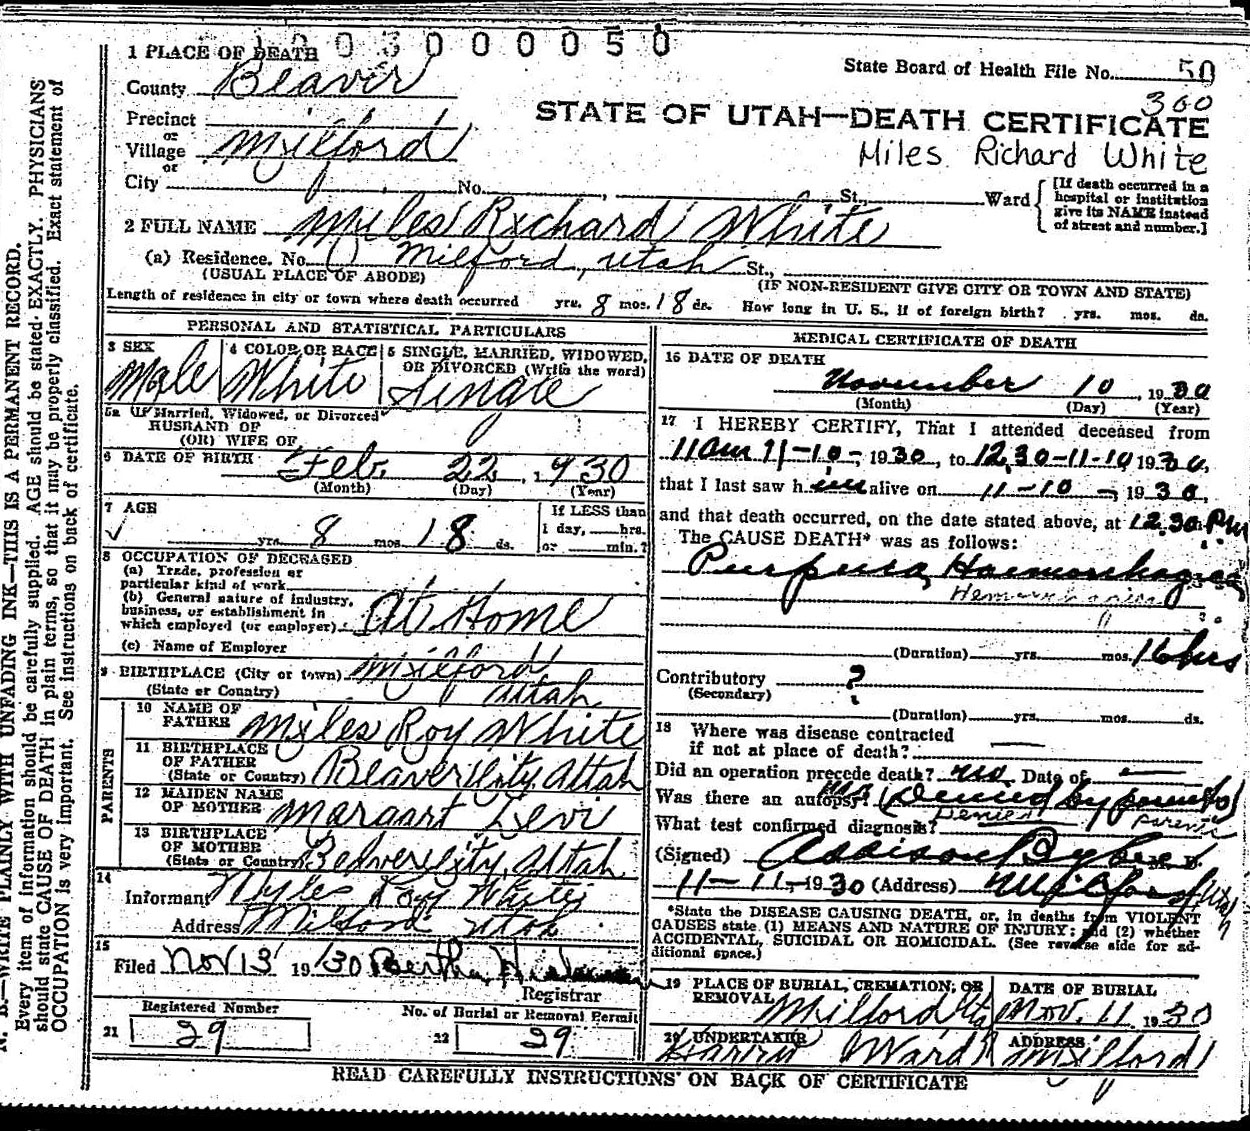 1 2 0 3 0 0 0 0 5 0
1 PLACE OF DEATH
County Beaver
State Board of Health File No. 50
300
Precinct
or
Village Milford
or
City No. St., Ward
STATE OF UTAH—DEATH CERTIFICATE
Miles Richard White
[If death occurred in a
hospital or institution
give its NAME instead
of street and number.]
2 FULL NAME Miles Richard White
(a) Residence. No. Milford, Utah St.,
(USUAL PLACE OF ABODE) (IF NON-RESIDENT GIVE CITY OR TOWN AND STATE)
Length of residence in city or town where death occurred yrs. 8 mos. 18 ds. How long in U. S., if of foreign birth? yrs. mos. ds.
PERSONAL AND STATISTICAL PARTICULARS
3 SEX 4 COLOR OR RACE 5 SINGLE, MARRIED, WIDOWED,
OR DIVORCED (Write the word)
Male White Single
5a If Married, Widowed, or Divorced
HUSBAND OF
(OR) WIFE OF
6 DATE OF BIRTH Feb. 22, 1930
(Month) (Day) (Year)
7 AGE If LESS than
1 day, hrs.
yrs. 8 mos. 18 ds. or min.?
8 OCCUPATION OF DECEASED
(a) Trade, profession or
particular kind of work
(b) General nature of industry,
business, or establishment in
which employed (or employer) At Home
(c) Name of Employer
9 BIRTHPLACE (City or town) Milford
(State or Country) Utah
PARENTS
10 NAME OF
FATHER Miles Roy White
11 BIRTHPLACE
OF FATHER
(State or Country) Beaver City, Utah
12 MAIDEN NAME
OF MOTHER Margart Levi
13 BIRTHPLACE
OF MOTHER
(State or Country) Beaver City, Utah
14
Informant Myles Roy White
Address Milford Utah
15
Filed Nov 13 1930 Bertha
Registrar
Registered Number No. of Burial or Removal Permit
21 29 22 29
MEDICAL CERTIFICATE OF DEATH
16 DATE OF DEATH
November 10, 1930
(Month) (Day) (Year)
17 I HEREBY CERTIFY, That I attended deceased from
11 am 11-10-, 1930, to 12,30-11-10 1930,
that I last saw him alive on 11-10-, 1930,
and that death occurred, on the date stated above, at 12.30 Pm.
The CAUSE DEATH* was as follows:
Purpura Haemorrhagica
(Duration) yrs. mos. 16 hrs
Contributory ?
(Secondary)
(Duration) yrs. mos. ds.
18 Where was disease contracted
if not at place of death? —
Did an operation precede death? no Date of —
Was there an autopsy? no (Denied by parents)
Denied parents
What test confirmed diagnosis?
(Signed) Addison M. D.
11-11-, 1930 (Address) Milford Utah
*State the DISEASE CAUSING DEATH, or, in deaths from VIOLENT
CAUSES state (1) MEANS AND NATURE OF INJURY; and (2) whether
ACCIDENTAL, SUICIDAL OR HOMICIDAL. (See reverse side for ad-
ditional space.)
19 PLACE OF BURIAL, CREMATION, OR
REMOVAL Milford Uta
DATE OF BURIAL
Nov. 11 1930
20 UNDERTAKER
Ward
ADDRESS
Milford
READ CAREFULLY INSTRUCTIONS ON BACK OF CERTIFICATE
N. B.—WRITE PLAINLY WITH UNFADING INK—THIS IS A PERMANENT RECORD.
Every item of information should be carefully supplied. AGE should be stated EXACTLY. PHYSICIANS
should state CAUSE OF DEATH in plain terms, so that it may be properly classified. Exact statement of
OCCUPATION is very important. See instructions on back of certificate.